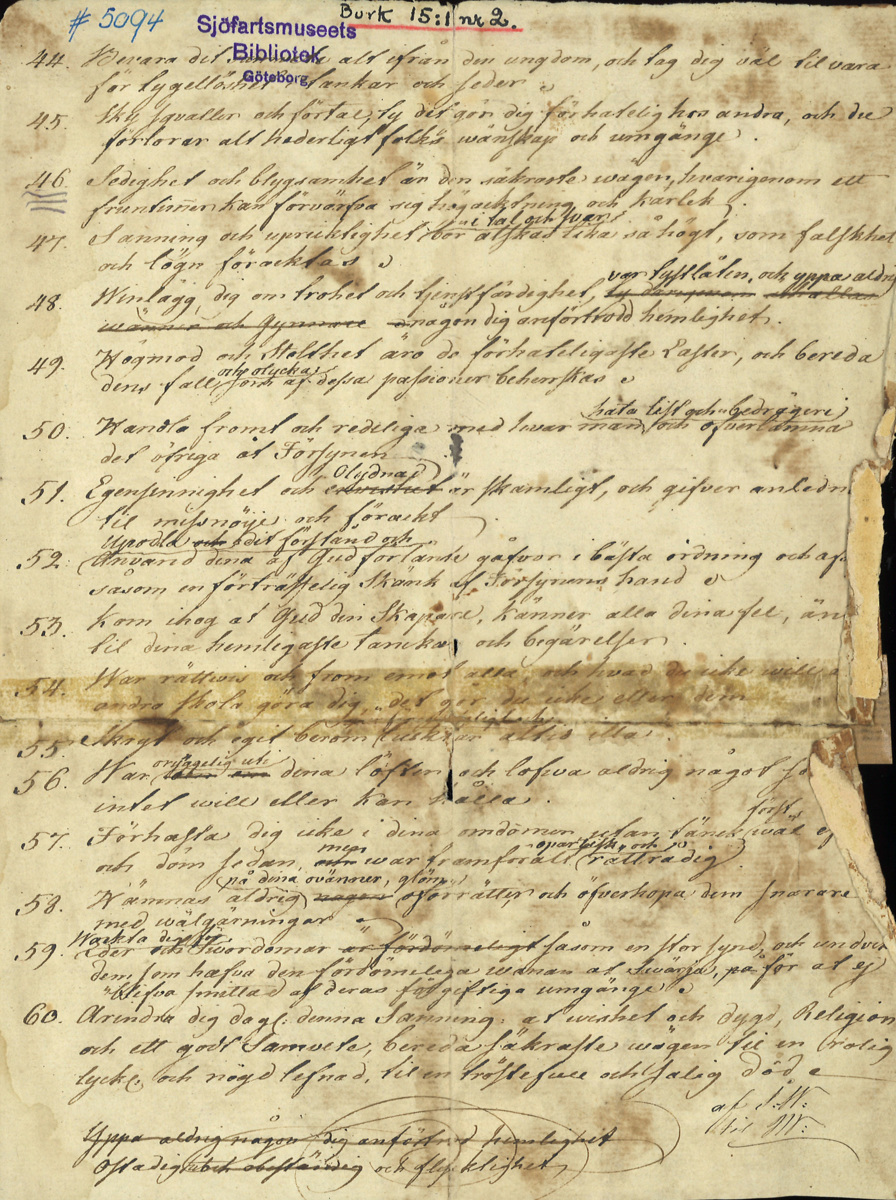 # 5094
Burk 15:1 nr 2.
Sjöfartsmuseets
Bibliotek
Göteborg
44. Bevara dit alt ifrån den ungdom, och tag dig väl til vara
för tygellöshet, tankar och seder
45. Sky sqvaller och förtal, ty det gör dig förhatelig hos andra, och du
förlorar alt hederligt folks wänskap och umgänge.
46. Sedighet och blygsamhet är den säkraste wägen, hvarigenom ett
fruntimer kan förvärfva sig högachtning och kärlek.
i tal och svar
47. Sanning och upricktighet bör älskas lika så högt, som falskhet
och lögn föracktas
var tystlåten, och yppa aldrig
48. Winlägg dig om trohet och tjenstfärdighet,
wänner och Gynnare någon dig anförtrodd hemlighet.
49. Högmod och Stolthet äro de förhateligaste Laster, och bereda
och olycka
dens fall som af dessa passioner beherrskas
hata list och bedrägeri
50. Handla fromt och redeliga med hvar man, och öfverlämna
det öfriga åt Försynen
Olydnad
51. Egensinnighet och är skamligt, och gifver anledn
til missnöje och förackt
Upodla det förstånd och
52. Använd dina af Gud förlänte gåfvor i bästa ordning och
såsom en förträffelig Skänk af Försynens hand
53. Kom ihog at Gud din Skapare, känner alla dina fel, än
til dina hemligaste tanckar och begärelser
54. War rättvis och from emot alla, och hvad du icke will
andra skola göra dig, det gör du icke eller dem
55. Skryt och eget beröm luktar altid illa.
orygгelig uti
56. War dina löften och lofva aldrig något
intet will eller kan hålla.
först
57. Förhasta dig icke i dina omdömen, utan tänck wäl
men opartisk och
och döm sedan, och war framföralt rättrådig
på dina ovänner, glöm
58. Hämnas aldrig någon oförrätter, och öfverhopa dem snarare
med wälgärningar
Wackta dig för
59. Eder och Swordomar är fördömeligt såsom en stor synd, och undvik
dem som hafva den fördömeliga wanan at Swärja, på för at ej
blifva smittad af deras förgiftiga umgänge.
60. Arindra dig dagl: denna Sanning: at wishet och dygd, Religion
och ett godt Samvete, bereda säkraste wägen til en rolig
lyckl. och nögd lefnad, til en tröstefull och salig död
af S. W:
til W:
Yppa aldrig någon dig anförtrod hemlighet
Ostadighet och obeständig och flycktighet,